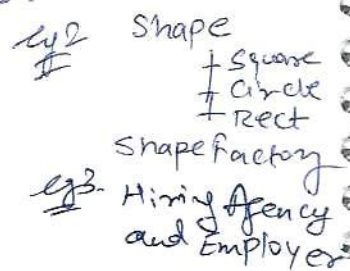 eg2 Shape
Square
Circle
Rect
Shape Factory
eg3. Hiring Agency
and Employer